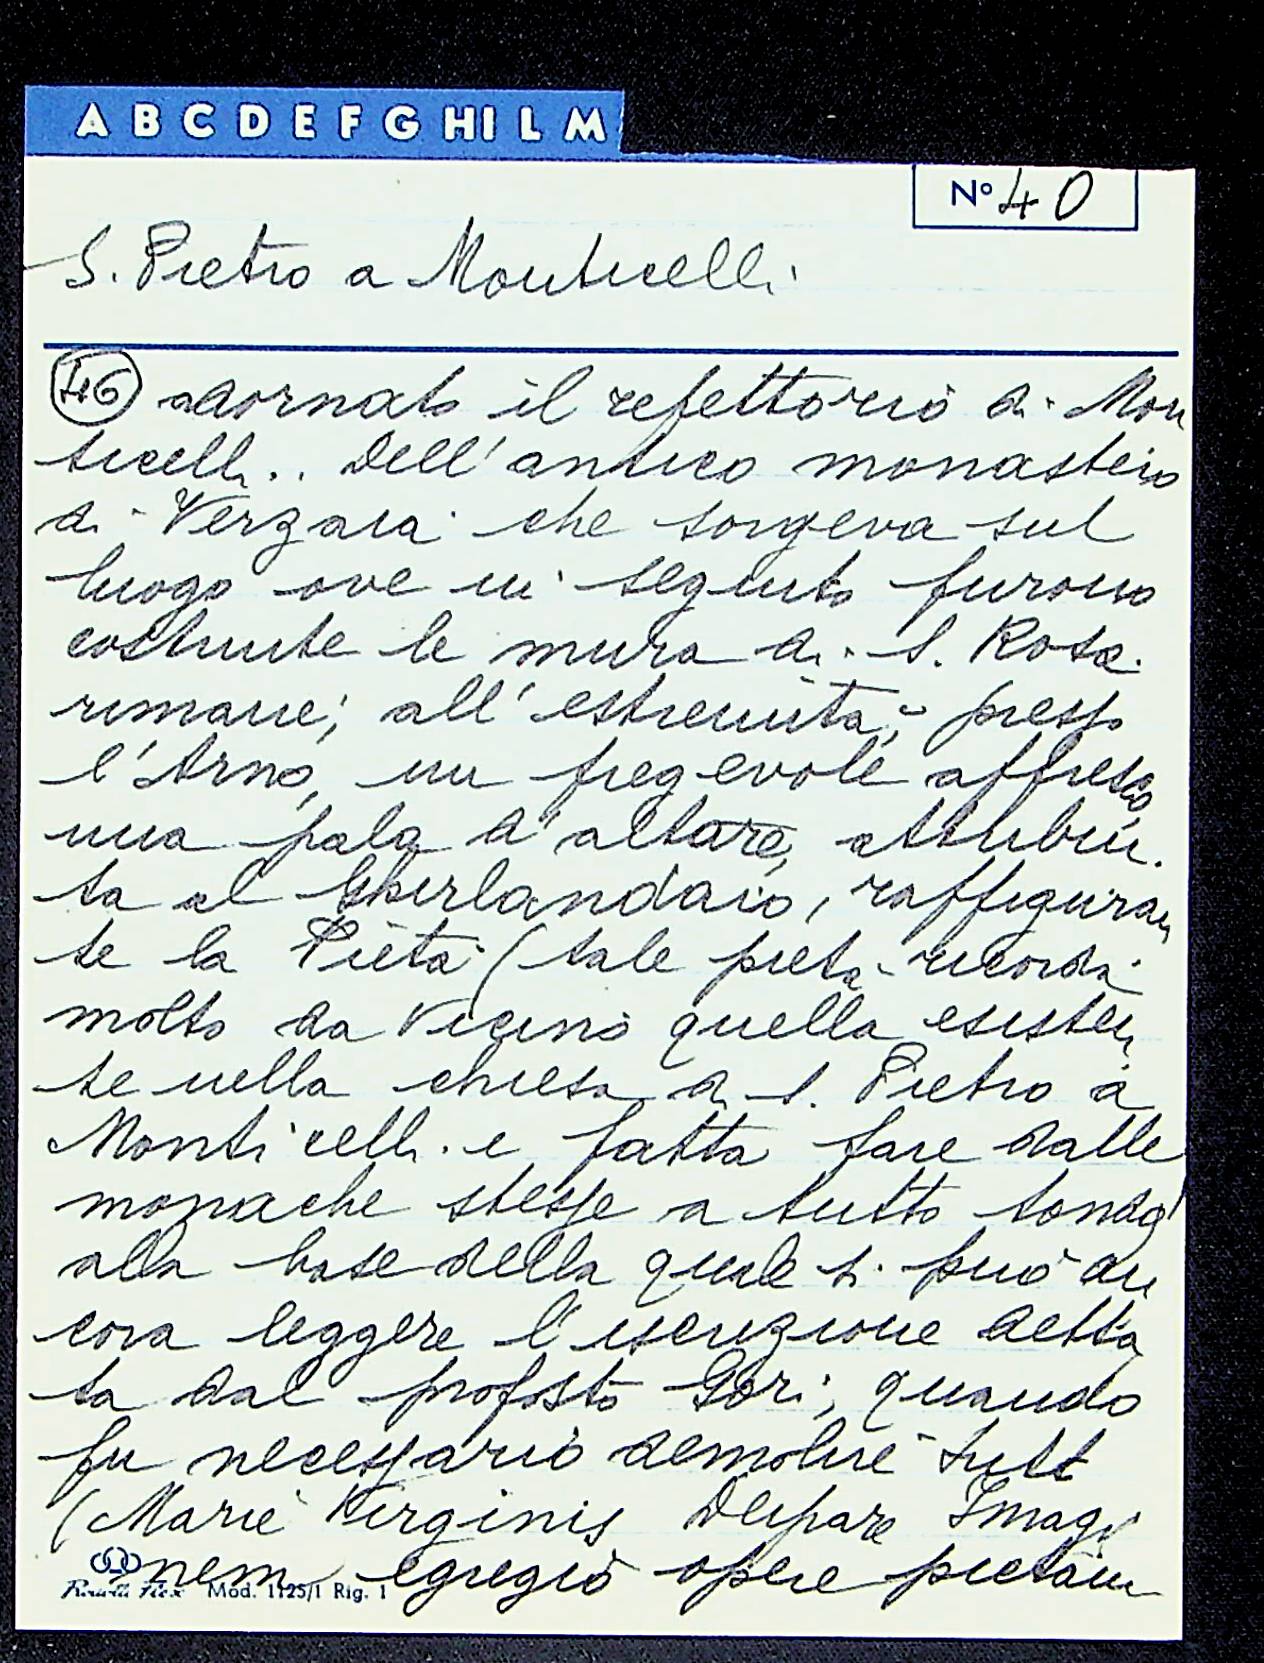 A B C D E F G HI L M
Nº 40
S. Pietro a Monticelli
46 adornato il refettorio di Mon
ticelli.. Dell'antico monastero
di Verzaia che sorgeva sul
luogo ove in seguito furono
costruite le mura di S. Rosa
rimane, all'estremità, presso
l'Arno, un pregevole affresco
una pala d'altare, attribui.
ta al Ghirlandaio, raffiguran
te la Pietà (tale pietà ricorda
molto da vicino quella esisten
te nella chiesa di S. Pietro a
Monticelli e fatta fare dalle
monache stesse a tutto tondo)
alla base della quale si può an
cora leggere l'iscrizione detta
ta dal proposto Gori, quando
fu necessario demolire tutt
(Marie Virginis Deipare Imagi
nem egregio opere pictam
Mod. 1125/1 Rig. 1